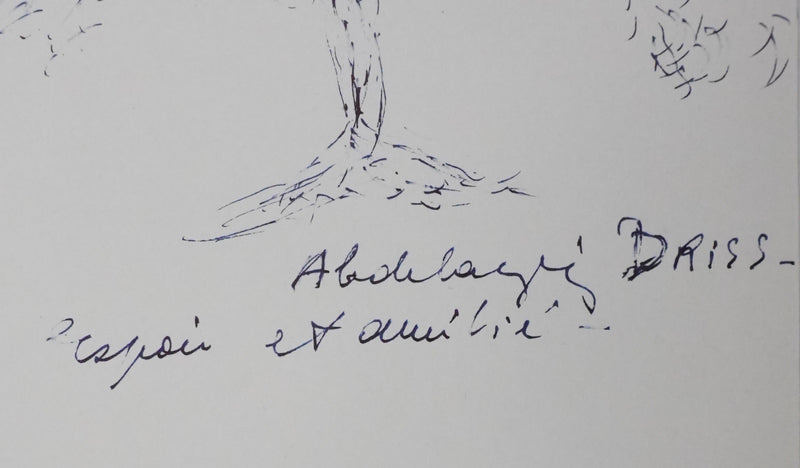 Abdelaziz DRISS -
espoir et amitié -